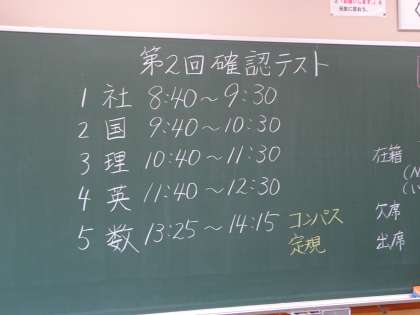 第2回確認テスト
1 社 8:40～9:30
2 国 9:40～10:30
3 理 10:40～11:30
4 英 11:40～12:30
5 数 13:25～14:15 コンパス
定規
在籍
欠席
出席